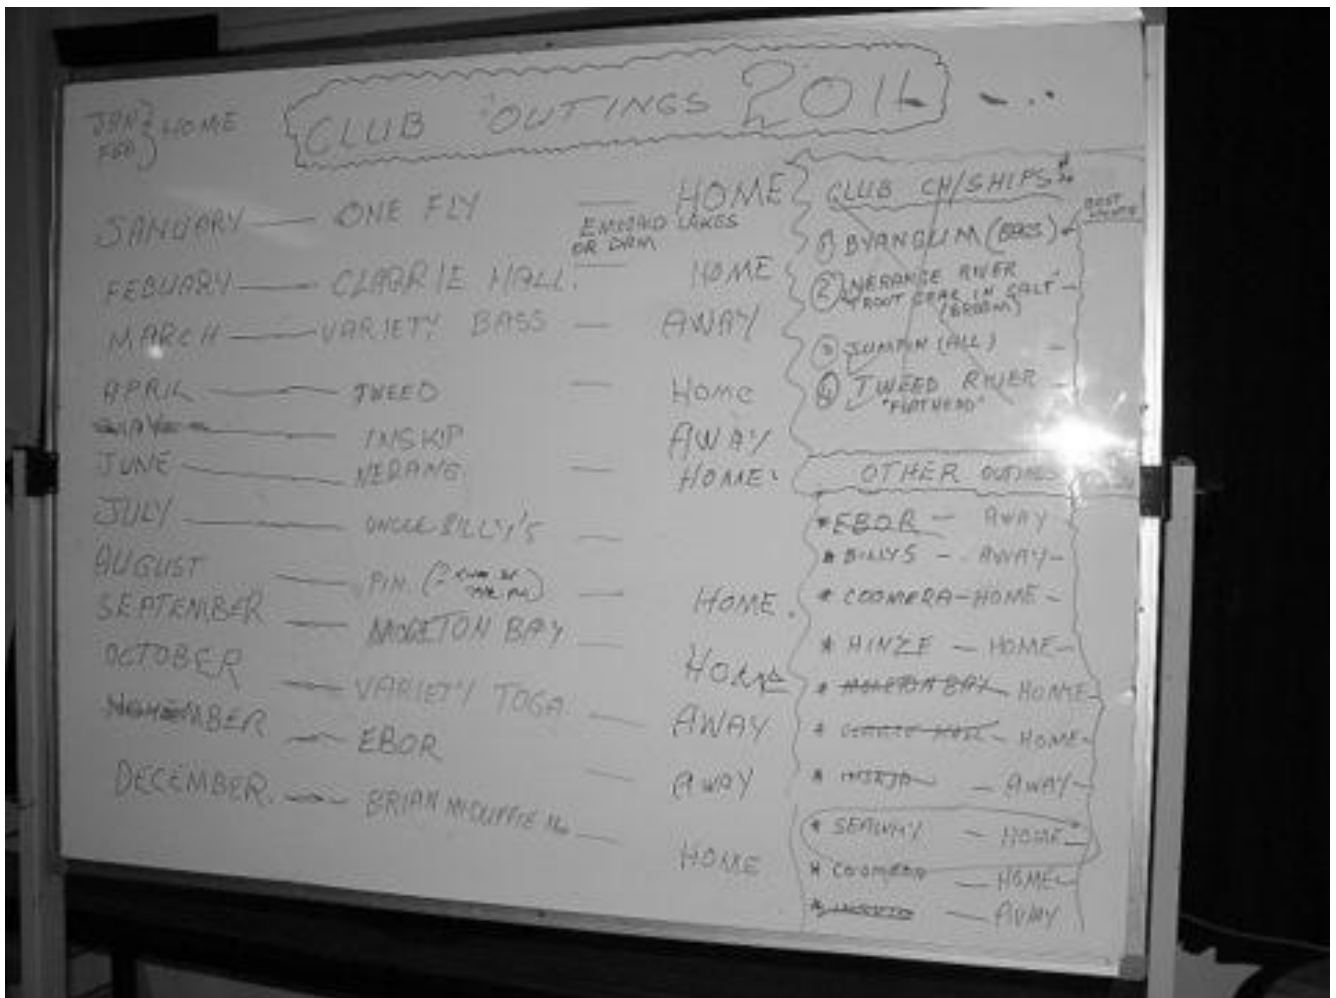 JAN
FEB } HOME
CLUB OUTINGS 2011
JANUARY — ONE FLY — HOME
EMERALD LAKES
OR DAM
FEBUARY — CLARRIE HALL. — HOME
MARCH — VARIETY BASS — AWAY
APRIL — TWEED — HOME
MAY — INSKIP AWAY
JUNE — NERANG — HOME
JULY — UNCLE BILLY'S —
AUGUST — PIN. — HOME
SEPTEMBER — MORETON BAY — HOME
OCTOBER — VARIETY TOGA — AWAY
NOVEMBER — EBOR — AWAY
DECEMBER. — BRIAN McDUFFIE — HOME
CLUB CH/SHIPS
① BYANGUM (BASS)
② NERANGE RIVER
TROUT GEAR IN SALT
(BREAM)
③ JUMPIN (ALL) -
④ TWEED RIVER -
"FLATHEAD"
OTHER OUTINGS
* EBOR - AWAY
* BILLYS - AWAY -
* COOMERA - HOME -
* HINZE - HOME -
* MORETON BAY - HOME
* CLARRIE HALL - HOME
* INSKIP - AWAY
* SEAWAY - HOME
* COOMERA - HOME
* - AWAY